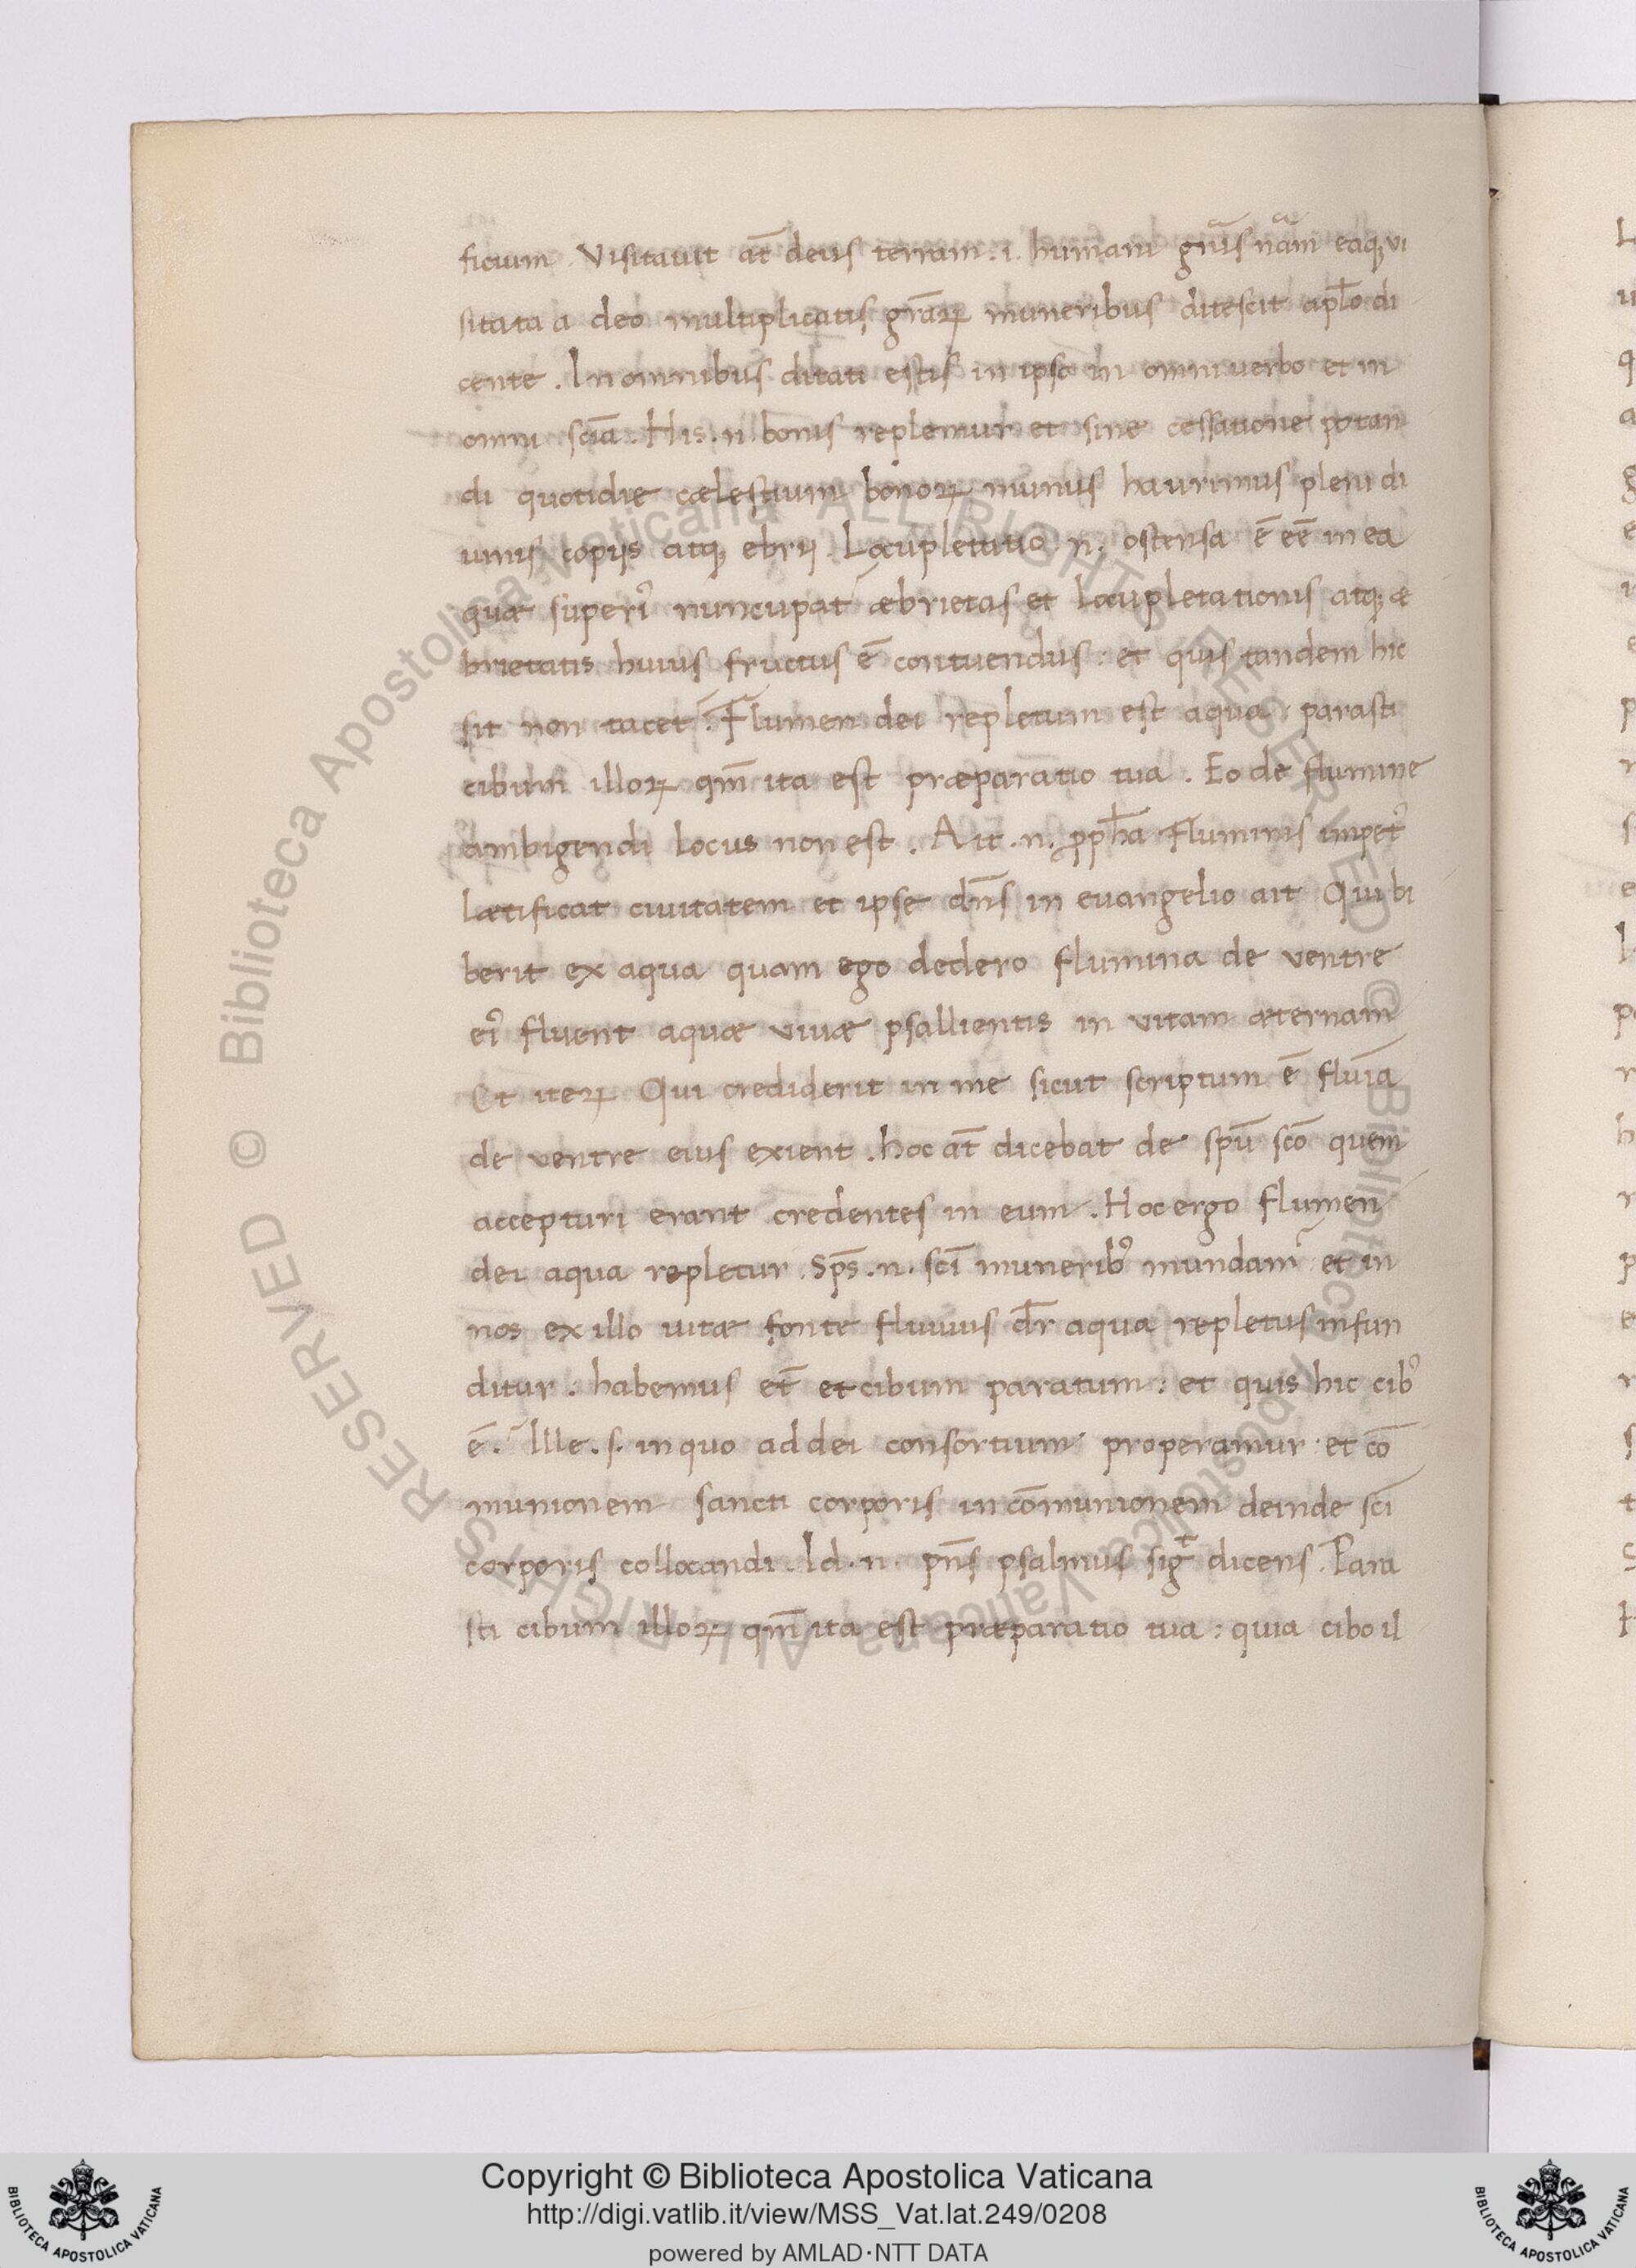 ficium. Visitauit at̄ deus terram .i. humani gn̄is nām eaq; vi
sitata a deo multiplicatis grāꝝ muneribus ditescit apl̄o di
cente. In omnibus ditati estis in ipso in omni uerbo et in
omni scīa. His .n. bonis replemur et sine cessatione potan
di quotidie cælestium bonoꝝ munus haurimus pleni di
uinis copijs atq; ebrij. Locupletatio .n. ostensa ē eē in ea
quæ superꝰ nuncupat̄ æbrietas et locupletationis atq; æ
brietatis huius fructus ē contuendus: et quis tandem hic
sit non tacet. Flumen dei repletum est aqua: parasti
cibum illoꝝ qm̄ ita est præparatio tua. Eo de flumine
ambigendi locus non est. Ait .n. ꝓpħa Fluminis impetꝰ
lætificat ciuitatem et ipse dn̄s in euangelio ait Qui bi
berit ex aqua quam ego dedero flumina de ventre
eiꝰ fluent aquæ viuæ psallientis in vitam æternam
Et iteꝝ Qui crediderit in me sicut scriptum ē flūia
de ventre eius exient. hoc at̄ dicebat de spū scō quem
accepturi erant credentes in eum. Hoc ergo flumen
dei aqua repletur. Sp̄s .n. scī muneribꝰ mundamꝰ et in
nos ex illo uitæ fonte fluuius dr̄ aqua repletus infun
ditur: habemus et̄ et cibum paratum: et quis hic cibꝰ
ē. Ille .s. in quo ad dei consortium properamur: et cō
munionem sancti corporis in cōmunionem deinde scī
corporis collocandi. Id .n. pn̄s psalmus sigᵗ dicens. Para
sti cibum illoꝝ qm̄ ita est præparatio tua: quia cibo il
© Biblioteca Apostolica Vaticana ALL RIGHTS RESERVED
© Biblioteca Apostolica Vaticana ALL RIGHTS RESERVED
Copyright © Biblioteca Apostolica Vaticana
http://digi.vatlib.it/view/MSS_Vat.lat.249/0208
powered by AMLAD·NTT DATA
BIBLIOTECA APOSTOLICA VATICANA
BIBLIOTECA APOSTOLICA VATICANA